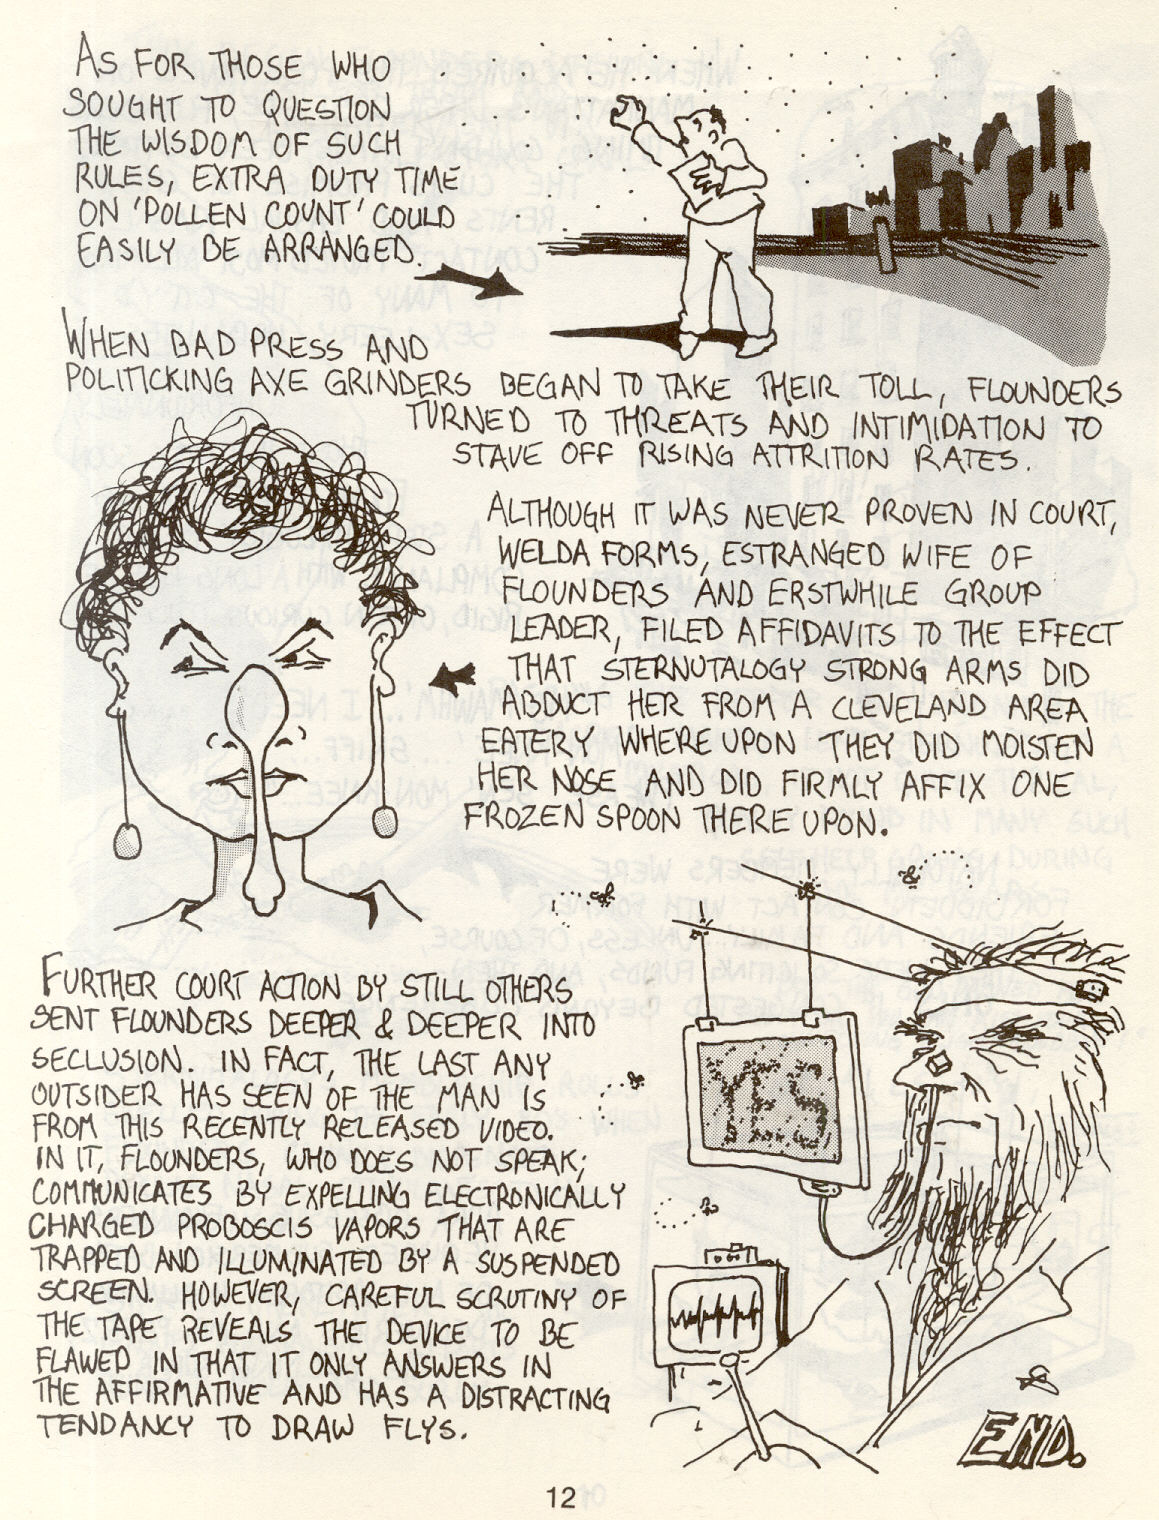 AS FOR THOSE WHO
SOUGHT TO QUESTION
THE WISDOM OF SUCH
RULES, EXTRA DUTY TIME
ON 'POLLEN COUNT' COULD
EASILY BE ARRANGED.
WHEN BAD PRESS AND
POLITICKING AXE GRINDERS BEGAN TO TAKE THEIR TOLL, FLOUNDERS
TURNED TO THREATS AND INTIMIDATION TO
STAVE OFF RISING ATTRITION RATES.
ALTHOUGH IT WAS NEVER PROVEN IN COURT,
WELDA FORMS, ESTRANGED WIFE OF
FLOUNDERS AND ERSTWHILE GROUP
LEADER, FILED AFFIDAVITS TO THE EFFECT
THAT STERNUTALOGY STRONG ARMS DID
ABDUCT HER FROM A CLEVELAND AREA
EATERY WHERE UPON THEY DID MOISTEN
HER NOSE AND DID FIRMLY AFFIX ONE
FROZEN SPOON THERE UPON.
FURTHER COURT ACTION BY STILL OTHERS
SENT FLOUNDERS DEEPER & DEEPER INTO
SECLUSION. IN FACT, THE LAST ANY
OUTSIDER HAS SEEN OF THE MAN IS
FROM THIS RECENTLY RELEASED VIDEO.
IN IT, FLOUNDERS, WHO DOES NOT SPEAK;
COMMUNICATES BY EXPELLING ELECTRONICALLY
CHARGED PROBOSCIS VAPORS THAT ARE
TRAPPED AND ILLUMINATED BY A SUSPENDED
SCREEN. HOWEVER, CAREFUL SCRUTINY OF
THE TAPE REVEALS THE DEVICE TO BE
FLAWED IN THAT IT ONLY ANSWERS IN
THE AFFIRMATIVE AND HAS A DISTRACTING
TENDANCY TO DRAW FLYS.
YES
END.
12